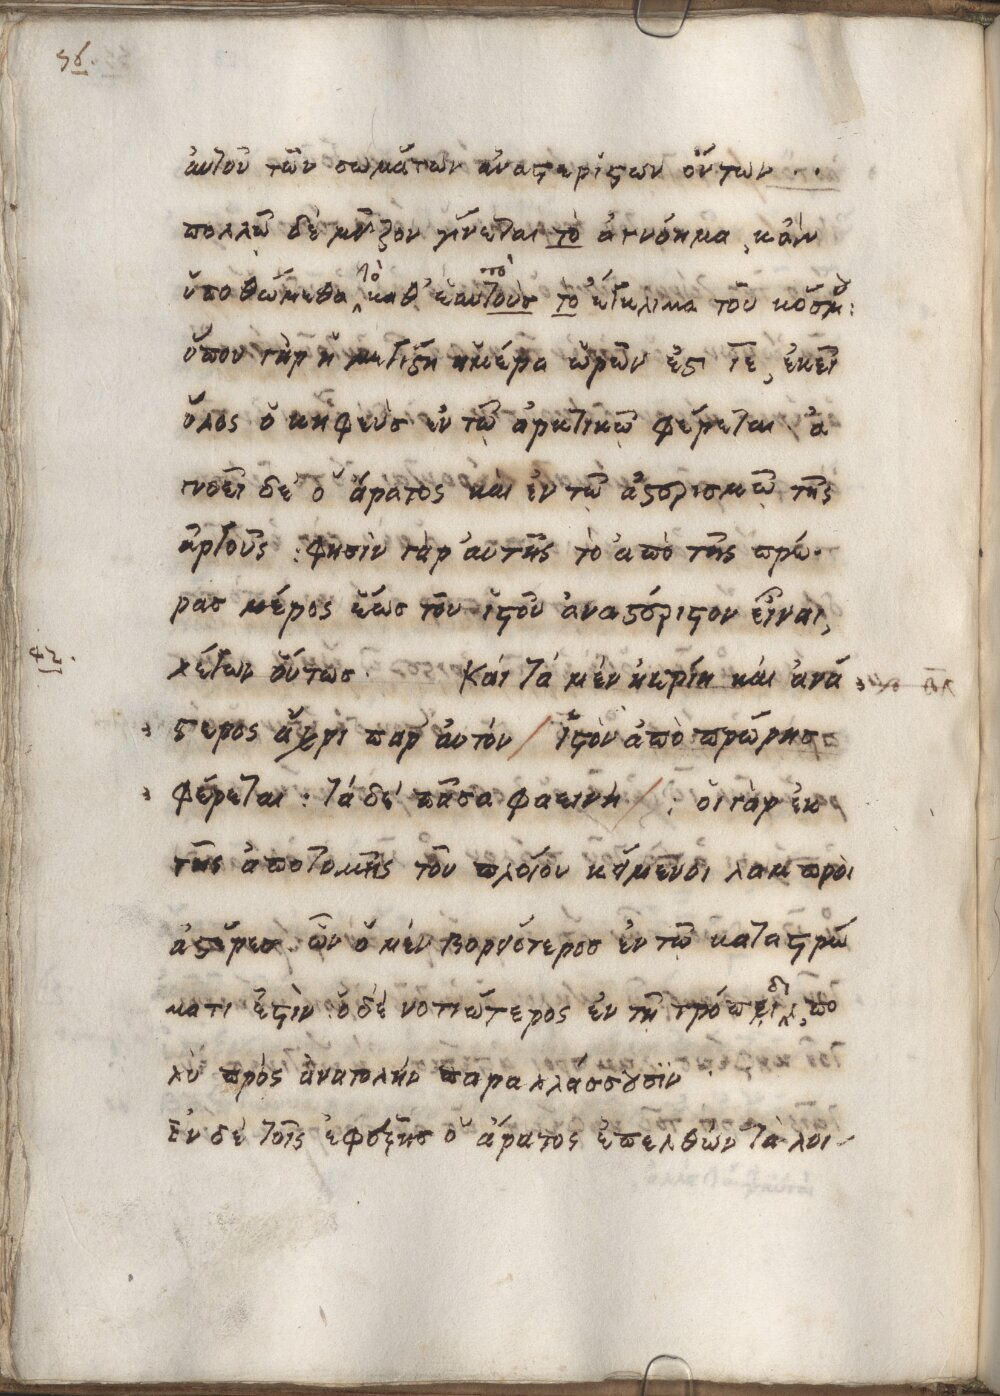 56.
ἀυτοῦ τῶν σωμάτων ἀναστερίστων ὄντων ··
πολλῶ δὲ μεῖζον γίνεται τὸ ἀγνόημα, κἂν
ὑποθώμεθα τὸ καθ' ἑαυτοὺς τὸ ἔγκλιμα τοῦ κόσμου:
ὅπου γὰρ ἡ μεγίστη ἡμέρα ὡρῶν ἐστὶ ιε, ἐκεῖ
ὅλος ὁ κηφεὺσ ἐν τῶ ἀρκτικῶ φέρεται ἀ
γνοεῖ δὲ ὁ ἄρατος καὶ ἐν τῶ ἀστερισμῶ τῆς
ἀργοῦς : φησὶν γὰρ αὐτῆς τὸ ἀπὸ τῆς πρώ
ρασ μέρος ἕωσ τοῦ ἱστοῦ ἀναστέριστον εἶναι,
λέγων οὕτωσ· Καὶ τὰ μὲν ἠωρίη καὶ ἀνά
42.
στερος ἄχρι παρ' ἀυτὸν / ἱστὸν ἀπὸ πρώρησ
φέρεται : τὰ δὲ πᾶσα φαεινὴ / : οἱ γὰρ ἐκ
τῆς ἀποτομῆς τοῦ πλοίου κείμενοι λαμπροὶ
ἀστέρεσ· ὧν ὁ μὲν βορηότεροσ ἐν τῶ καταστρώ
ματι ἐστὶν· ὁ δὲ νοτιώτερος ἐν τῆ τρόπιδι, πο
λὺ πρὸς ἀνατολὴν παραλλάσσουσϊν
Εν δὲ τοῖς ἐφεξῆσ ὁ ἄρατος ἐπελθὼν τὰ λοι-